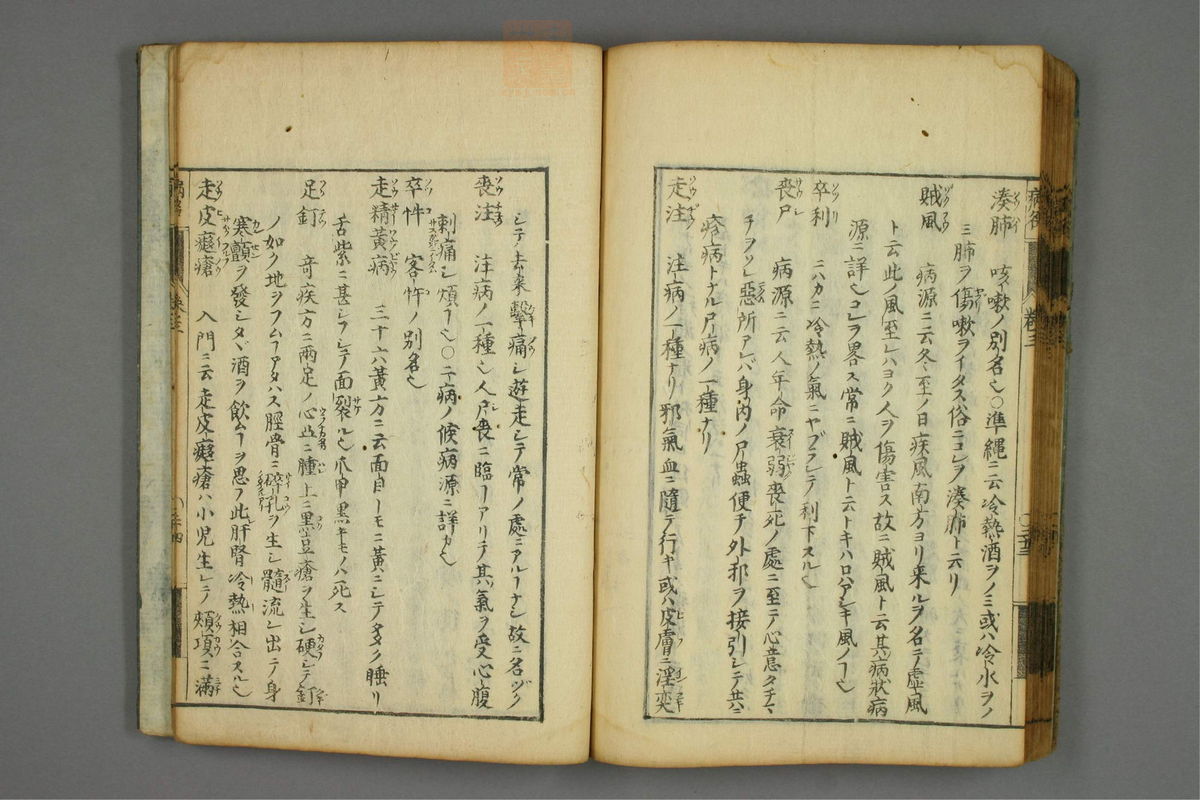 湊肺 咳嗽ノ別名也〇準縄ニ云冷熱酒ヲノミ或ハ冷水ヲノ
ミ肺ヲ傷嗽ヲイタス俗ニコレヲ湊肺ト云リ
賊風 病源ニ云冬至ノ日疾風南方ヨリ来ルヲ名テ虚風
ト云此ノ風至レハヨク人ヲ傷害ス故ニ賊風ト云其病状病
源ニ詳也コレヲ畧ス常ニ賊風ト云トキハ
卒利 ニハカニ冷熱ノ氣ニヤブラレテ利下スル也
喪尸 病源ニ云人年命衰弱喪死ノ處ニ至テ心意タチマ
チヲソレ惡所アレバ身内ノ尸蟲便チ外邪ヲ接引シテ共ニ
疹病トナル尸病ノ一種ナリ
走注 注病ノ一種ナリ邪氣血ニ隨テ行キ或ハ皮膚ニ淫奕
シテ去来擊痛シ遊走シテ常ノ處ニアルヿナシ故ニ名ヅク
喪注 注病ノ一種也人尸喪ニ臨ヿアリテ其氣ヲ受心腹
刺痛シ煩ヿ也〇二病ノ候病源ニ詳カ也
卒忤 客忤ノ別名也
走精黃病 三十六黃方ニ云面目トモニ黃ニシテ多ク睡リ
舌紫ニ甚シフシテ面裂ル也爪甲黒キモノハ死ス
足釘 奇疾方ニ兩足ノ心凸ニ腫上ニ黒豆瘡ヲ生シ硬シテ釘
ノ如ク地ヲフムヿアタハス脛骨ニ碎孔ヲ生シ髓流レ出テ身
寒顫ヲ發シタヾ酒ヲ飲ムヿヲ思フ此肝腎冷熱相合スル也
走皮瘑瘡 入門ニ云走皮瘑瘡ハ小児生レテ頰項ニ滿